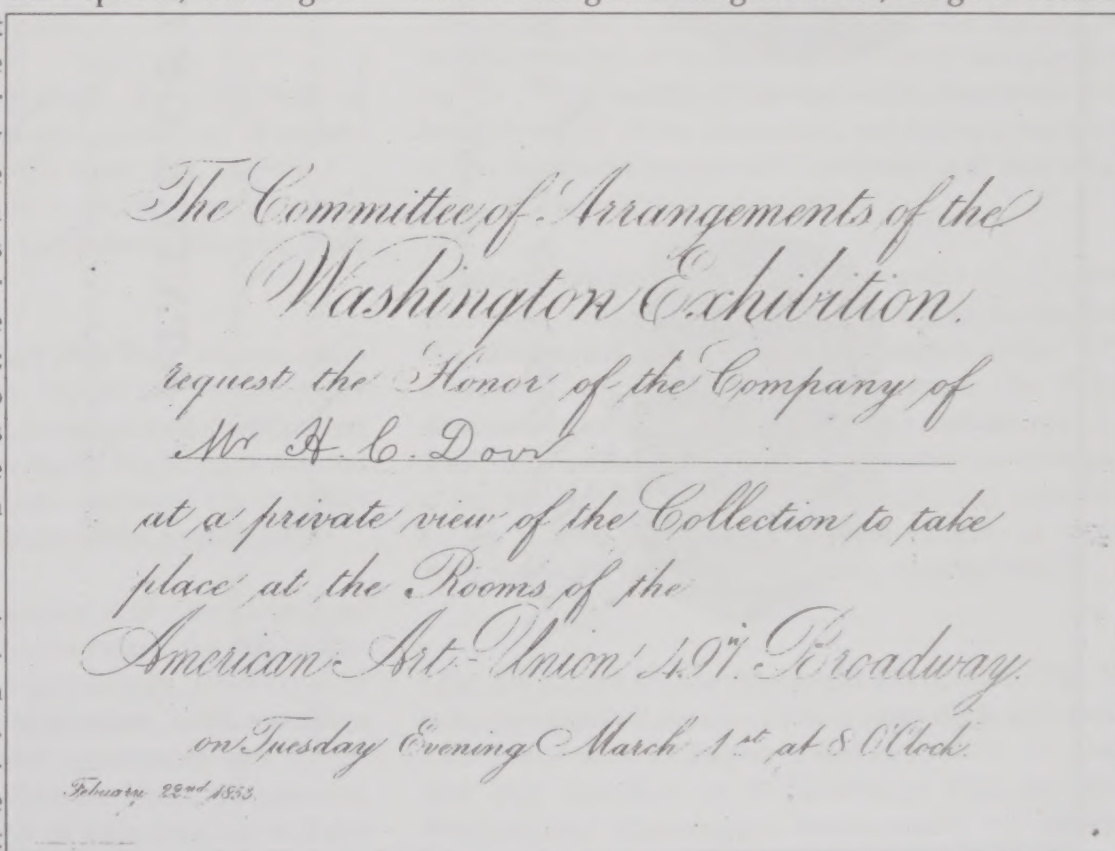 The Committee of Arrangements of the
Washington Exhibition.
request the Honor of the Company of
Mr H. C. Dorr
at a private view of the Collection to take
place at the Rooms of the
American Art-Union 497. Broadway.
on Tuesday Evening March 1st at 8 O'Clock.
Febuary 22nd 1853.